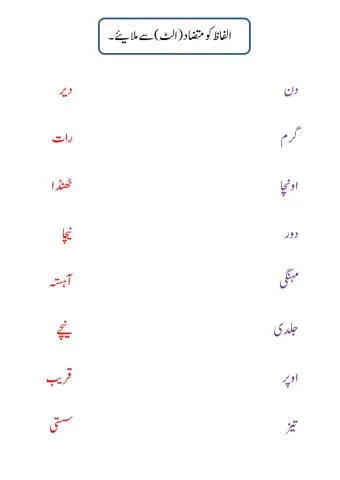 الفاظ کو متضاد (الٹ) سے ملایئے۔
دن دیر
گرم رات
اونچا ٹھنڈا
دور نیچا
مہنگی آہستہ
جلدی نیچے
اوپر قریب
تیز سستی